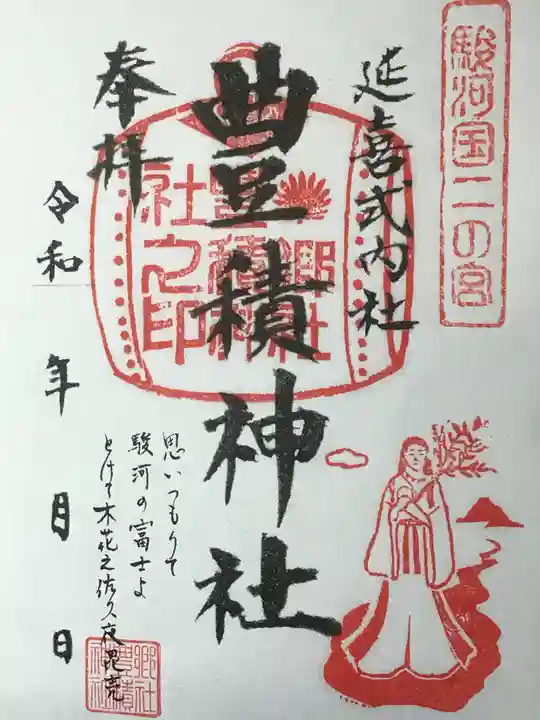 駿河国二の宮
延喜式内社
豊積神社
奉拝
令和 年 月 日
思いつもりて
駿河の富士よ
とけて木花之佐久夜毘売
郷社
豊積
神社
社之印